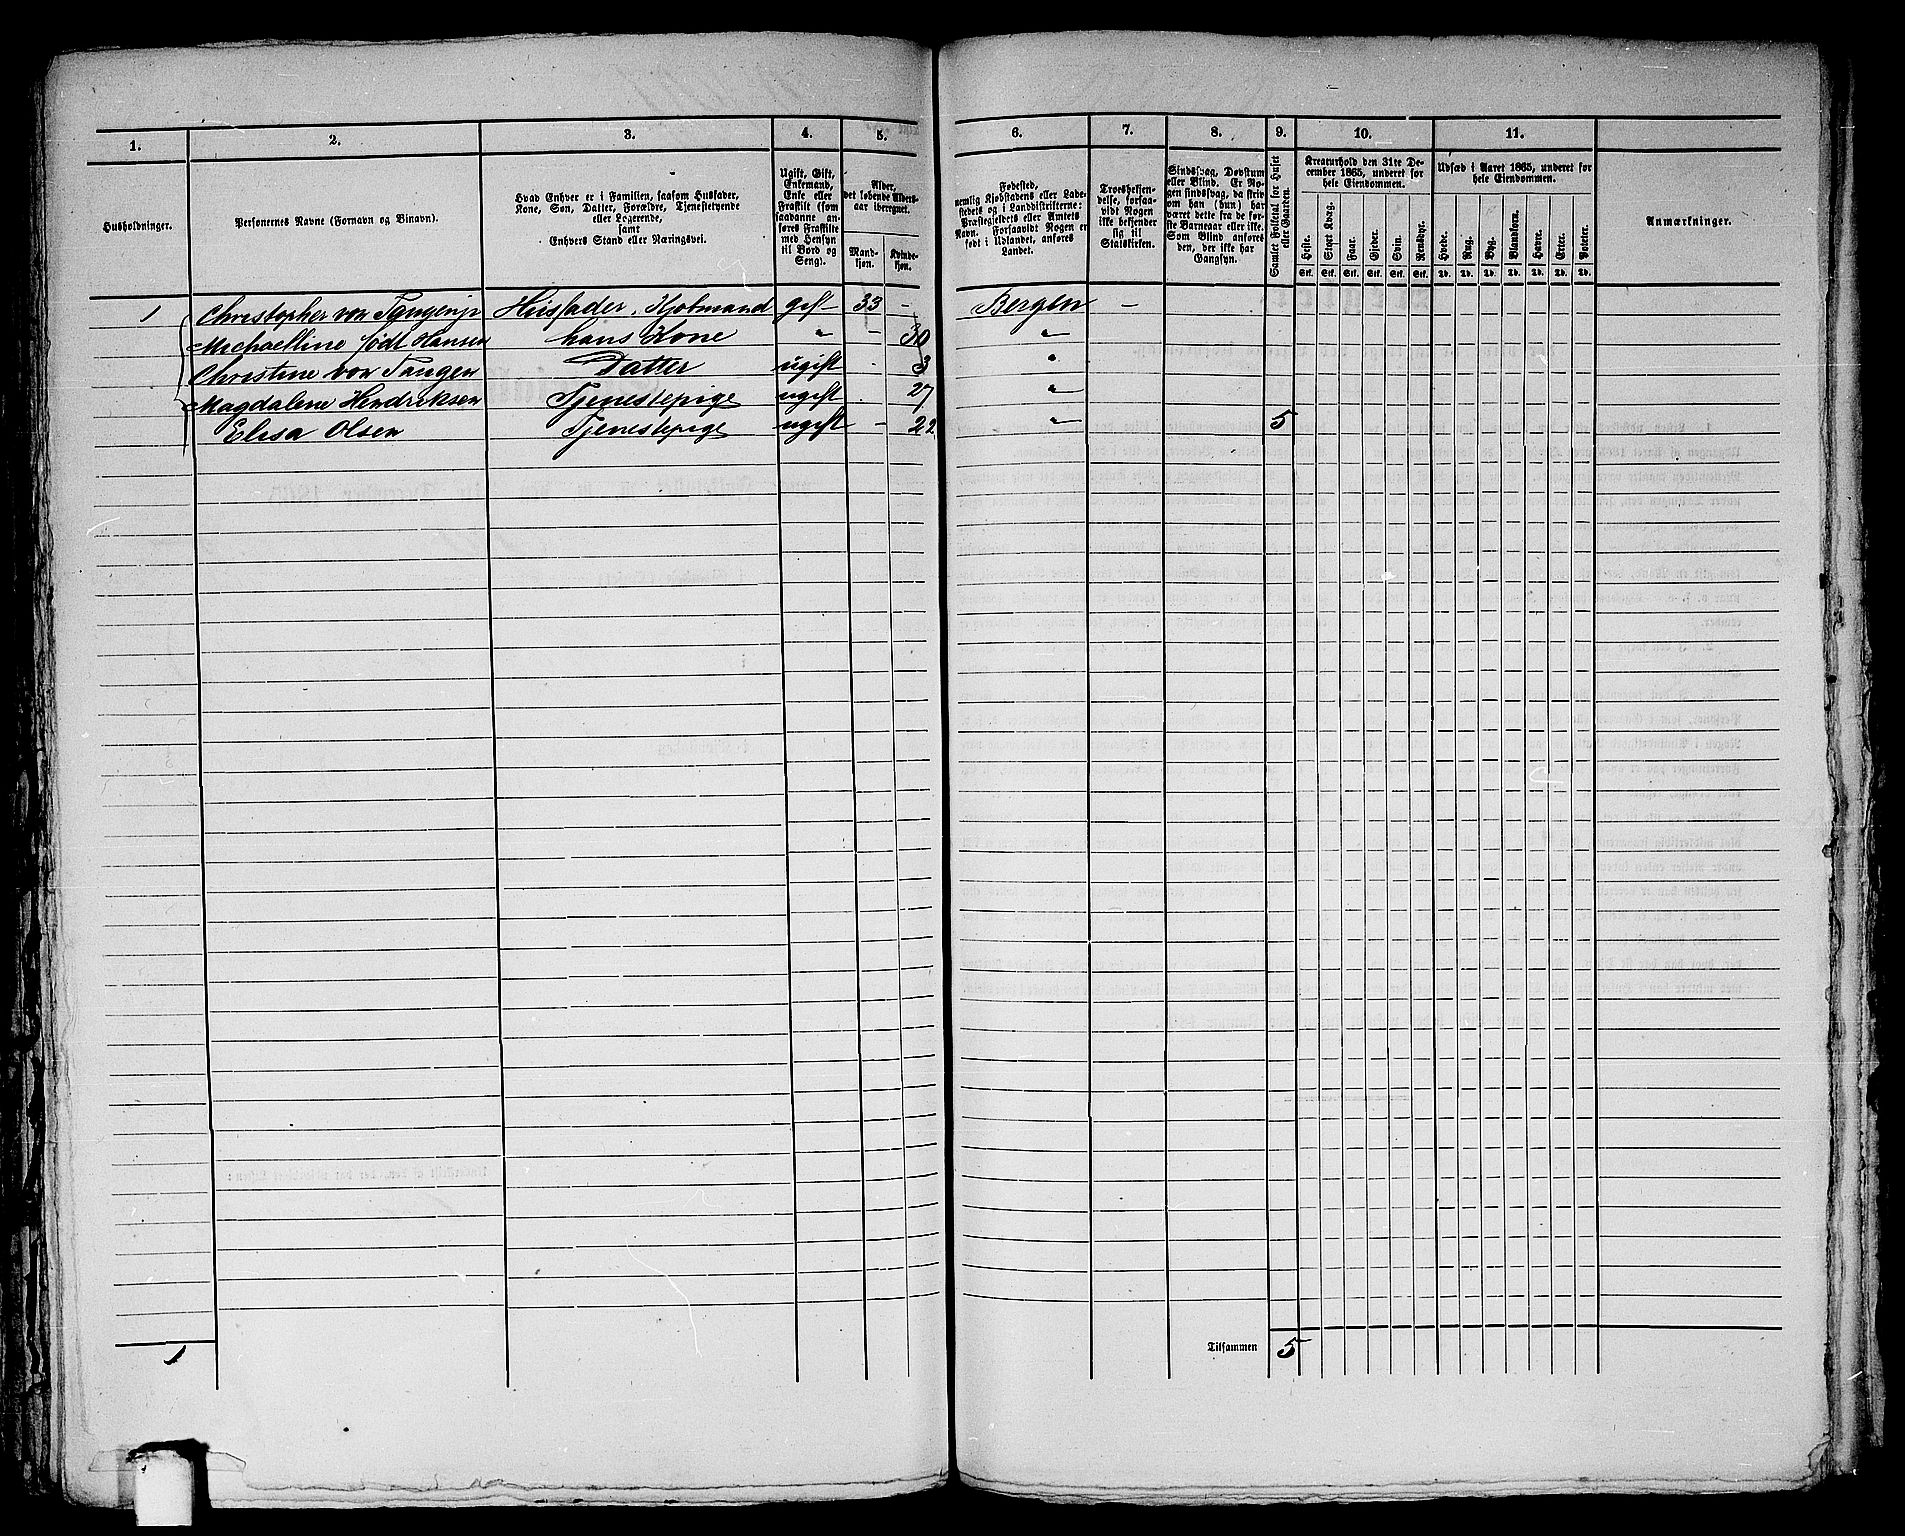 1. 2. 3. 4. 5. 6. 7. 8. 9. 10. 11.
Husholdninger.
Personernes Navne (Fornavn og Binavn).
Hvad Enhver er i Familien, saasom Husfader,
Kone, Søn, Datter, Forældre, Tjenestetyende
eller Logerende,
samt
Enhvers Stand eller Næringsvei.
Ugift, Gift,
Enkemand,
Enke eller
Fraskilt (som
saadanne an-
føres Fraskilte
med Hensyn
til Bord og
Seng).
Alder,
det løbende Alders-
aar iberegnet.
Mand-
kjøn.
Kvinde-
kjøn.
Fødested,
nemlig Kjøbstadens eller Lade-
stedets og i Landdistrikterne:
Præstegjeldets eller Amtets
Navn. Forsaavidt Nogen er
født i Udlandet, anføres
Landet.
Troesbekjen-
delse, forsaa-
vidt Nogen
ikke bekjender
sig til
Statskirken.
Sindssvag, Døvstum
eller Blind. Er No-
gen sindssvag, da skriv
om han (hun) har
været dette fra de før-
ste Barneaar eller ikke.
Som Blind anføres
den, der ikke har
Gangsyn.
Samlet Folketal for Huset
eller Gaarden.
Kreaturhold den 31te De-
cember 1865, underet for
hele Eiendommen.
Heste. Stort Kvæg. Faar. Gjeder. Svin. Rensdyr.
Stk. Stk. Stk. Stk. Stk. Stk.
Udsæd i Aaret 1865, underet for
hele Eiendommen.
Hvede. Rug. Byg. Blandkorn. Havre. Erter. Poteter.
Td. Td. Td. Td. Td. Td. Td.
Anmærkninger.
1 Christopher von Tangen jr Huusfader, Kjøbmand gift 33 - Bergen -
Michaelline født Hansen hans Kone " - 30 "
Christine von Tangen Datter ugift - 3 "
Magdalene Hendriksen Tjenestepige ugift - 27 "
Elisa Olsen Tjenestepige ugift - 22 " 5
1 Tilsammen 5